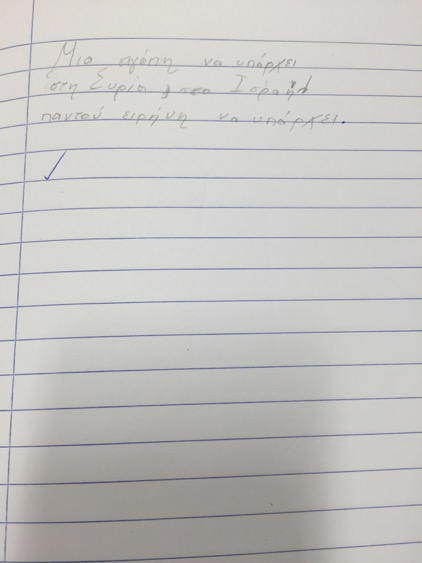 Μια αγάπη να υπάρχει
στη Συρία, στο Ισραήλ
παντού ειρήνη να υπάρχει.